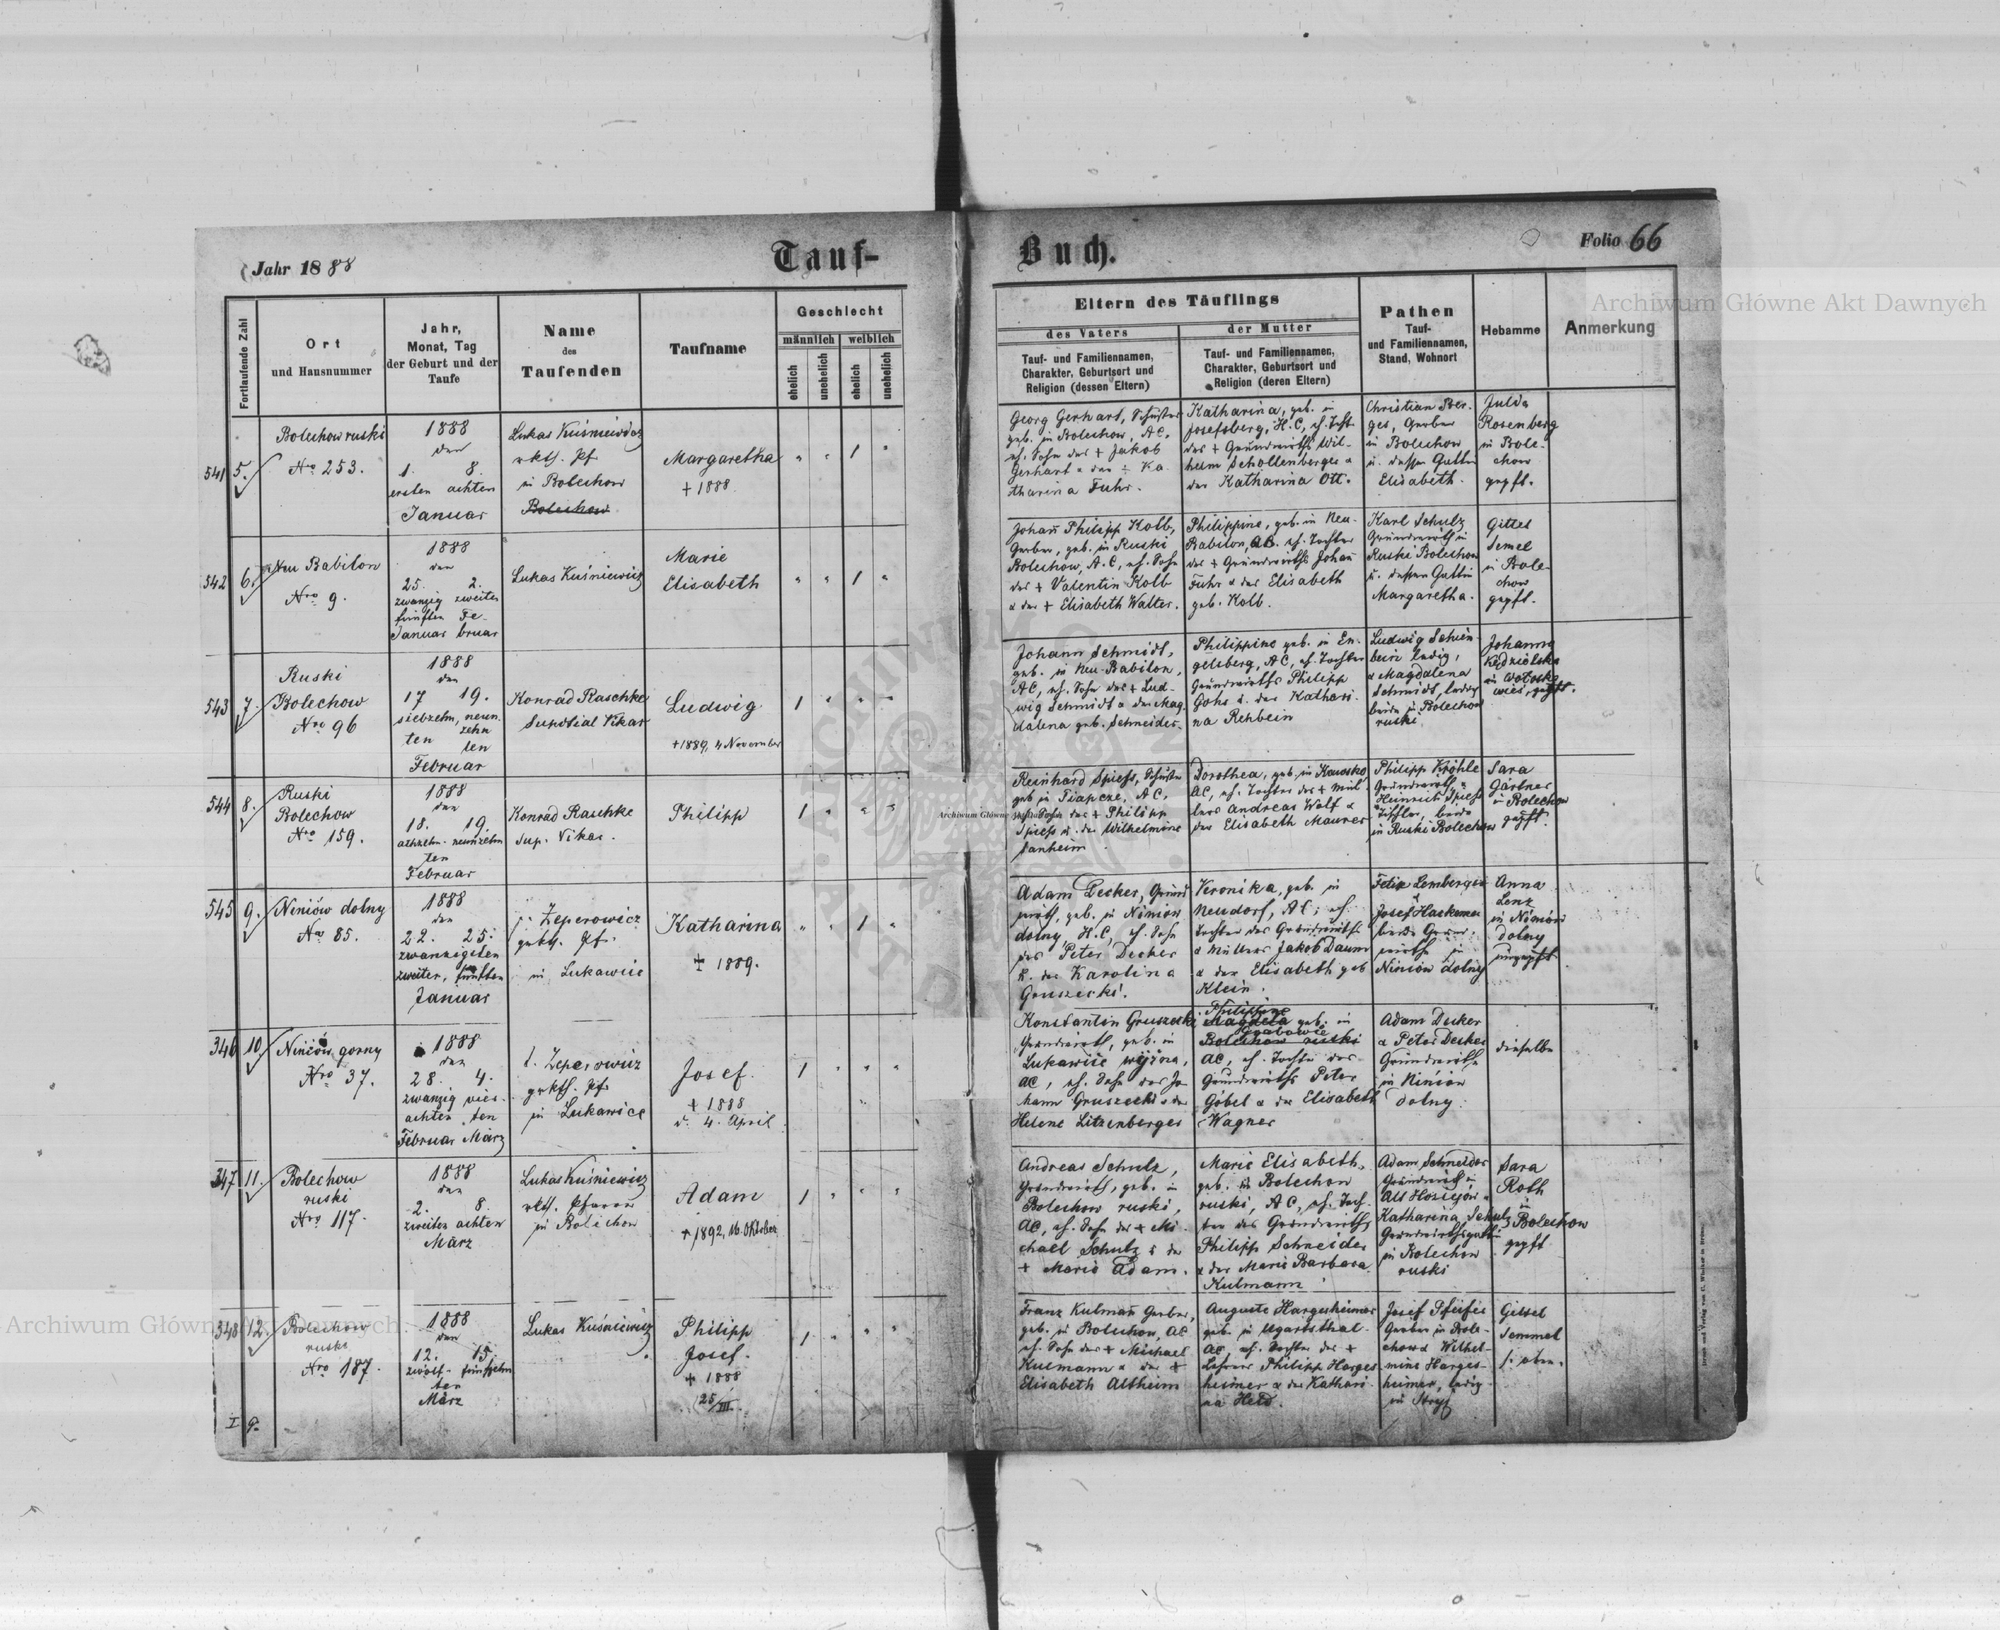 Jahr 1888
Tauf-
Buch.
Folio 66
Fortlaufende Zahl
Ort
und Hausnummer
Jahr,
Monat, Tag
der Geburt und der
Taufe
Name
des
Taufenden
Taufname
Geschlecht
männlich
weiblich
ehelich
unehelich
ehelich
unehelich
Eltern des Täuflings
des Vaters
Tauf- und Familiennamen,
Charakter, Geburtsort und
Religion (dessen Eltern)
der Mutter
Tauf- und Familiennamen,
Charakter, Geburtsort und
Religion (deren Eltern)
Pathen
Tauf-
und Familiennamen,
Stand, Wohnort
Hebamme
Anmerkung
541
5.
Bolechow ruski
Nro 253.
1888
den
1. 8.
ersten achten
Januar
Lukas
in Bolechow
Bolechow
Margaretha
+ 1888
1
Georg Gerhart, Schuster
geb. in Bolechow, A.C.
eh. Sohn des + Jakob
Gerhart u der + Ka
tharina Fuhr.
Katharina, geb. in
Josefsberg, H.C., eh. Tocht
des + Grundwirths Wil-
helm Schollenberger u
der Katharina Ott.
Christian
Gerber
in Bolechow
u. dessen Gattin
Elisabeth.
Julda
Rosenberg
in Bole-
chow
gepft.
542
6.
Neu Babilon
Nro 9.
1888
den
25. 2.
zwanzig zweiten
fünften Fe-
Januar bruar
Lukas Kuśniewicz
Marie
Elisabeth
1
Johañ Philipp Kolb,
Gerber, geb. in Ruski
Bolechow, A.C, eh. Sohn
des + Valentin Kolb
u der + Elisabeth Walter.
Philippine, geb. in Neu-
Babilon, AC. eh. Tochter
des + Grundwirths Johañ
Fuhr u der Elisabeth
geb. Kolb.
Karl Schulz
Grundwirth in
Ruski Bolechow
u. dessen Gattin
Margaretha.
Gittel
Semel
in Bole-
chow
gepft.
543
7.
Ruski
Bolechow
Nro 96
1888
den
17 19.
siebzehn, neun-
ten zehn
ten
Februar
Konrad Raschke
Vikar
Ludwig
+ 1889, 4 November
1
Johann Schmidt,
geb. in Neu-Babilon,
AC, eh. Sohn des + Lud-
wig Schmidt u der Mag
dalena geb. Schneider.
Philippine geb. in En-
gelsberg, AC, eh. Tochter
Grundwirths Philipp
Gohs u. der Kathari-
na Rehbein
Ludwig Schien-
bein ledig,
u Magdalena
Schmidt, ledig
beide in Bolechow
ruski.
Johanna
544
8.
Ruski
Bolechow
Nro 159.
1888
den
18. 19.
achzehn- neunzehn
ten
Februar
Konrad Raschke
Sup. Vikar.
Philipp
1
Reinhard Spiess, Schuster
geb in AC,
eh. Sohn des + Philipp
Spiess u. der Wilhelmine
Sanheim
Dorothea, geb. in
AC, eh. Tochter des + Mül-
lers Andreas Wolf u
der Elisabeth Maurer
Philipp Kröhle
Grundwirth,
Heinrich Spiess
Tischler, beide
in Ruski Bolechow
Sara
Gärtner
in Bolechow
gepft.
545
9.
Niniów dolny
Nro 85.
1888
den
22. 25.
zwanzigsten
zweiten, fünften
Januar
in Lukawice
Katharina
+ 1889.
1
Adam Decker, Grund
wirth, geb. in Niniow
dolny H.C, eh. Sohn
des Peter Decker
u. der Karolina
Gruszecki.
Veronika, geb. in
Neudorf, AC, eh
Tochter des Grundwirths
u Müllers Jakob Daum
u der Elisabeth geb
Klein.
Felix Lemberger
u
Josef Hackman
beide Grund-
wirthe in
Niniow dolny
Anna
Lenz
in Niniow
dolny
ungepft.
346
10.
Niniów gorny
Nro 37.
1888
den
28. 4.
zwanzig vier-
achten ten
Februar März
in Lukawice
Josef.
+ 1888
d. 4. April
1
Konstantin Gruszecki,
Grundwirth, geb. in
Lukawice wyżna,
AC, eh. Sohn des Jo
hann Gruszecki u der
Helene Litzenberger
Philippine
Magdala geb. in
Grabowie
Bolechow ruski
AC, eh. Tochter des
Grundwirths Peter
Göbel u der Elisabeth
Wagner
Adam Decker
u Peter Decker
Grundwirthe
in Niniow
dolny.
dieselbe
347
11.
Bolechow
ruski
Nro 117.
1888
den
2. 8.
zweiten achten
März
Lukas Kuśniewicz
in Bolechow
Adam
+ 1892, 16. Oktober
1
Andreas Schulz,
Grundwirth, geb. in
Bolechow ruski,
AC, eh. Sohn des + Mi-
chael Schulz u der
+ Marie Adam.
Marie Elisabeth,
geb. in Bolechow
ruski, AC, eh. Toch-
ter des Grundwirths
Philipp Schneider
u der Marie Barbara
Kulmann
Adam Schneider
Grundwirth in
Alt Hoszów u
Katharina Schulz
Grundwirthsgattin
in Bolechow
ruski
Sara
Roth
in
Bolechow
gepft
348
12.
Bolechow
ruski
Nro 187.
1888
den
12. 15.
zwölf- fünfzehn
ten
März
Lukas Kuśniewicz
Philipp
Josef.
+ 1888
25/III.
1
Franz Kulmañ Gerber,
geb. in Bolechow, AC
eh. Sohn des + Michael
Kulmann u der +
Elisabeth Altheim
Auguste Hargesheimer
geb. in Ugartsthal-
AC, eh. Tochter des +
Lehrers Philipp Harges
heimer u der Kathari-
na Held.
Josef Pfeifer
Gerber in Bole-
chow u Wilhel-
mine Harges-
heimer, ledig
in Stryj
Gittel
Semmel
s. oben.
Archiwum Główne Akt Dawnych
Archiwum Główne Akt Dawnych